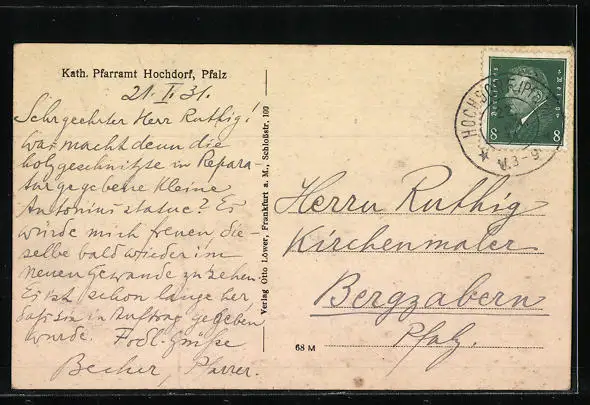 Kath. Pfarramt Hochdorf, Pfalz
21. I. 31.
Sehrgeehrter Herr Ruthig!
Was macht denn die
holzgeschnitzte in Repara
tur gegebene kleine
Antoniusstatue? Es
würde mich freuen die
selbe bald wieder im
neuen Gewande zu sehen
Es ist schon lange her
daß sie in Auftrag gegeben
wurde. Frdl. Grüße
Becher, Pfarrer.
Verlag Otto Löwer, Frankfurt a. M., Schloßstr. 100
68 M
Herrn Ruthig
Kirchenmaler
Bergzabern
Pfalz.
8 8
HOCHDORF (PF